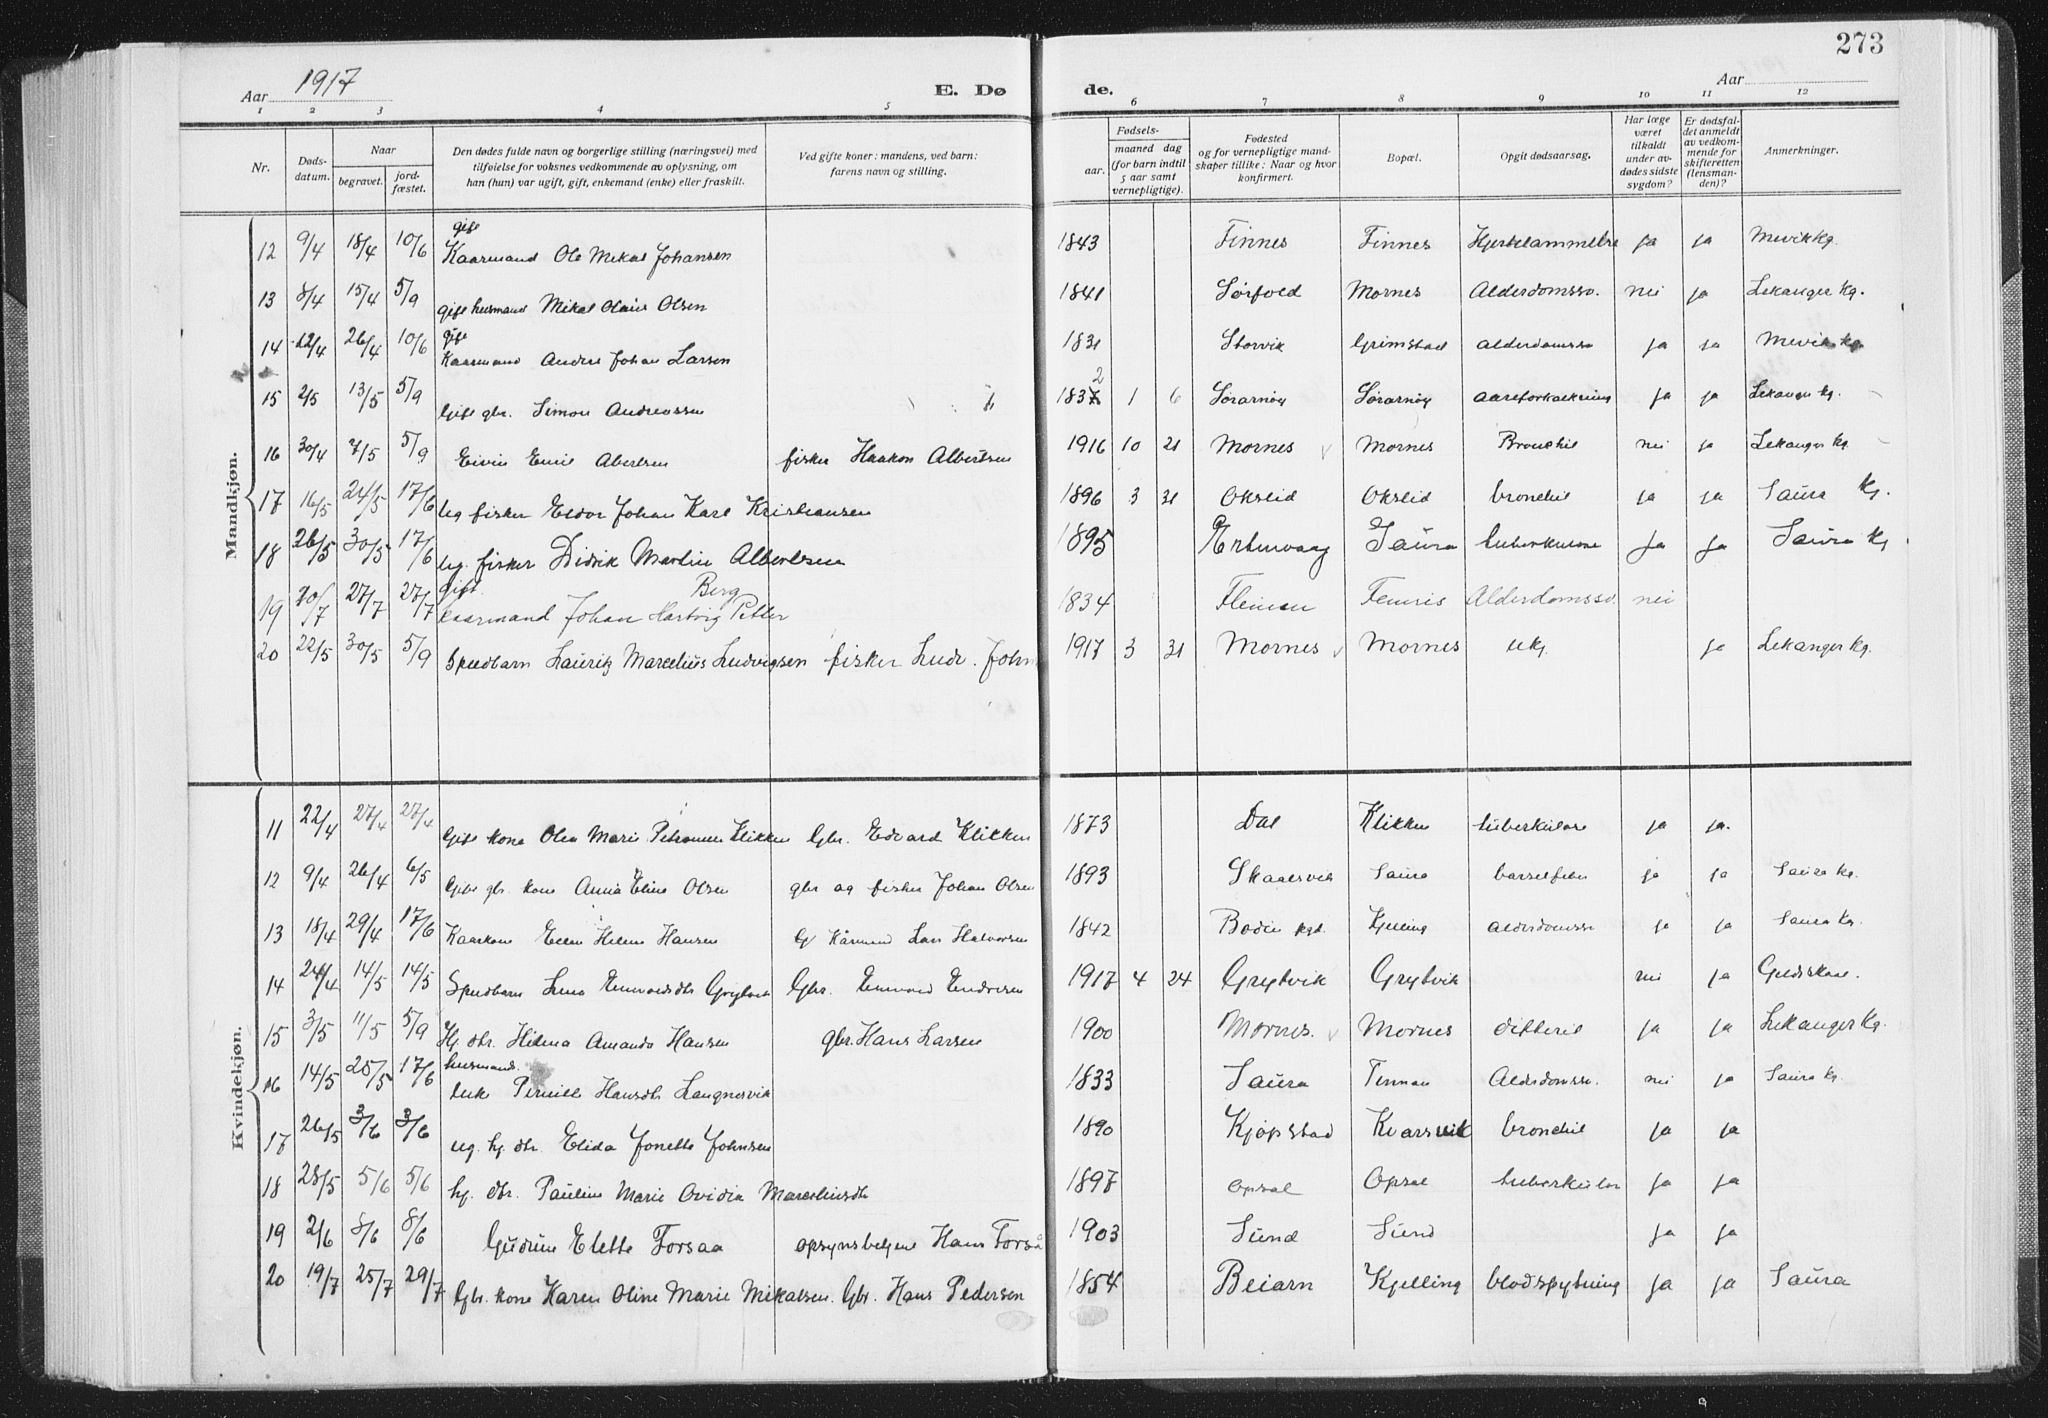 273
Aar 1917
E. Dø de.
Aar
1 2 3 4 5 6 7 8 9 10 11 12
Nr.
Døds-datum.
Naar
begravet.
jord-fæstet.
Den dødes fulde navn og borgerlige stilling (næringsvei) med
tilføielse for voksnes vedkommende av oplysning, om
han (hun) var ugift, gift, enkemand (enke) eller fraskilt.
Ved gifte koner: mandens, ved barn:
farens navn og stilling.
Fødsels-
aar.
maaned dag
(for barn indtil
5 aar samt
vernepligtige).
Fødested
og for vernepligtige mand-
skaper tillike: Naar og hvor
konfirmert.
Bopæl.
Opgit dødsaarsag.
Har læge
været
tilkaldt
under av-
dødes sidste
sygdom?
Er dødsfal-
det anmeldt
av vedkom-
mende for
skifteretten
(lensman-
den)?
Anmerkninger.
Mandkjøn.
12 9/4 18/4 10/6 gift Kaarmand Ole Mikal Johansen 1843 Finnes Finnes Hjertelammelse ja ja Mevik kg.
13 8/4 15/4 5/9 gift husmand Mikal Olaus Olsen 1841 Sørfold Mornes Alderdomssv. nei ja Lekanger kg.
14 12/4 26/4 10/6 gift Kaarmand Anders Johan Larsen 1831 Storvik Grimstad alderdomssv ja ja Mevik kg
15 2/5 13/5 5/9 Gift gbr. Simon Andreassen 1837 2 1 6 Sørarnøy Sørarnøy aareforkalkning ja ja Lekanger kg.
16 30/4 7/5 5/9 Eivin Emil Abertsen fisker Haakon Albertsen 1916 10 21 Mornes Mornes Bronchit nei ja Lekanger kg
17 16/5 24/5 17/6 ug fisker Eldor Johan Karl Kristiansen 1896 3 31 Oksvid Oksvid bronchit ja ja Saura kg.
18 26/5 30/5 17/6 ug. fisker Didrik Martin Albertsen 1895 Ertenvaag Saura tuberkulose ja ja Saura kg.
19 20/7 27/7 27/7 gift Berg kaarmand Johan Hartvig Petter 1834 Fleinsu Fenris Alderdomssv. nei
20 22/5 30/5 5/9 Spedbarn Lauritz Marcelius Ludvigsen fisker Ludv. John 1917 3 31 Mornes Mornes ukj. ja Lekanger kg.
Kvindekjøn.
11 22/4 27/4 27/4 Gift kone Olea Marie Petronene Klikken Gbr. Edvard Klikken 1873 Dal Klikken tuberkulose ja ja.
12 9/4 26/4 6/5 Gift gbr kone Anna Eline Olsen gbr og fisker Johan Olsen 1893 Skaalsvik Saura barselfeber ja ja Saura kg.
13 18/4 29/4 17/6 Kaarkone Ellen Helene Hansen G Kårmand Lars Halvorsen 1842 Bodin pgd. Kjelling alderdomssv ja ja Saura kg
14 24/4 14/5 14/5 Spedbarn Lina Edvardsdtr Grytvik Gbr. Edvard Endresen 1917 4 24 Grytvik Grytvik nei ja Gildeskaal.
15 3/5 11/5 5/9 Hj. dtr. Hilma Amanda Hansen gbr. Hans Larsen 1900 Mornes. Mornes difterit ja ja Lekanger kg.
16 14/5 25/5 17/6 husmands enke Pernille Hansdtr Langnesvik 1833 Saura Tennan Alderdomssv. nei ja Saura kg.
17 26/5 3/6 3/6 ug. hj. dtr. Elida Jonette Johnsen 1890 Kjøpstad Kvarsvik bronchit ja ja
18 28/5 5/6 5/6 hj. dtr. Pauline Marie Ovidia Marceliusdtr 1897 Opsal Opsal tuberkulos ja ja
19 2/6 8/6 8/6 Gudrun Elette Forsaa opsynsbetjent Hans Forså 1903 Sund Sund ja ja
20 19/7 25/7 29/7 Gbr. kone Karen Oline Marie Mikalsen. Gbr. Hans Pedersen 1854 Beiarn Kjelling blodspytning ja ja Saura